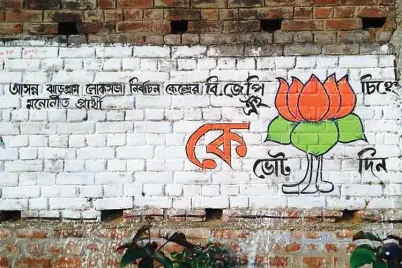 আসন্ন ঝাড়গ্রাম লোকসভা নির্বাচন কেন্দ্রের বি.জে.পি
মনোনীত প্রার্থী
কে
এই
চিহ্নে
ভোট দিন